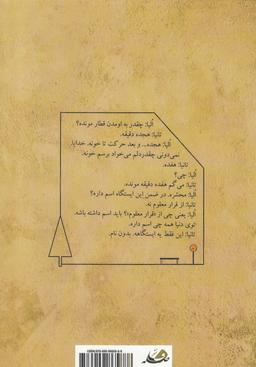 آلیا: چقدر به اومدن قطار مونده؟
تانیا: هجده دقیقه.
آلیا: هجده.. و بعد حرکت تا خونه. خدایا،
نمی‌دونی چقدر دلم می‌خواد برسم خونه.
تانیا: هفده.
آلیا: چی؟
تانیا: می‌گم هفده دقیقه مونده.
آلیا: محشره. در ضمن این ایستگاه اسم داره؟
تانیا: از قرار معلوم نه.
آلیا: یعنی چی از «قرار معلوم»؟ باید اسم داشته باشه.
توی دنیا همه چی اسم داره.
تانیا: این فقط یه ایستگاهه. بدون نام.